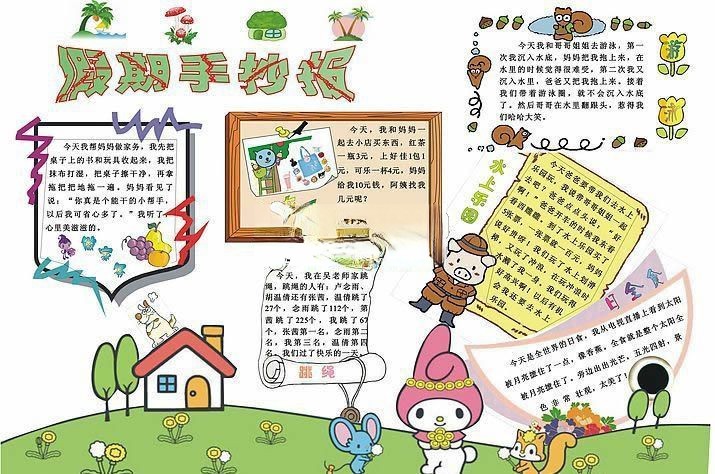 假期手抄报
今天我帮妈妈做家务，我先把
桌子上的书和玩具收起来，我把
抹布打湿，把桌子擦干净，再拿
拖把把地拖一遍。妈妈看见了
说：“你真是个能干的小帮手，
以后我可省心多了。”我听了，
心里美滋滋的。
今天，我和妈妈一
起去小店买东西，红茶
一瓶3元，上好佳1包1
元，可乐一杯4元，妈妈
给我10元钱，阿姨找我
几元呢？
今天我和哥哥姐姐去游泳，第一
次我沉入水底，妈妈把我拖上来，在
水里的时候觉得很难受。第二次我又
沉入水里，爸爸又把我拖上来。接着
我们带着游泳圈，就不会沉入水底
了。然后哥哥在水里翻跟头，惹得我
们哈哈大笑。
游
泳
水上乐园
今天爸爸要带我们去水上
乐园玩，我说带哥哥姐姐一起
去吧！爸爸点点头说：“好
今天，我在吴老师家跳
绳，跳绳的人有：卢念雨、
胡温倩还有张茜，温倩跳了
27个，念雨跳了112个，第
茜跳了225个，我跳了67
个，张茜第一名，念雨第二
名，我第三名，温倩第四
名，我们过了快乐的一天。
跳绳
日全食
今天是全世界的日食，我从电视直播上看到太阳
被月亮挡住了一点，像香蕉，全食就是整个太阳全
被月亮挡住了。旁边出出光芒，五光四射，景
色非常壮观，太美了！